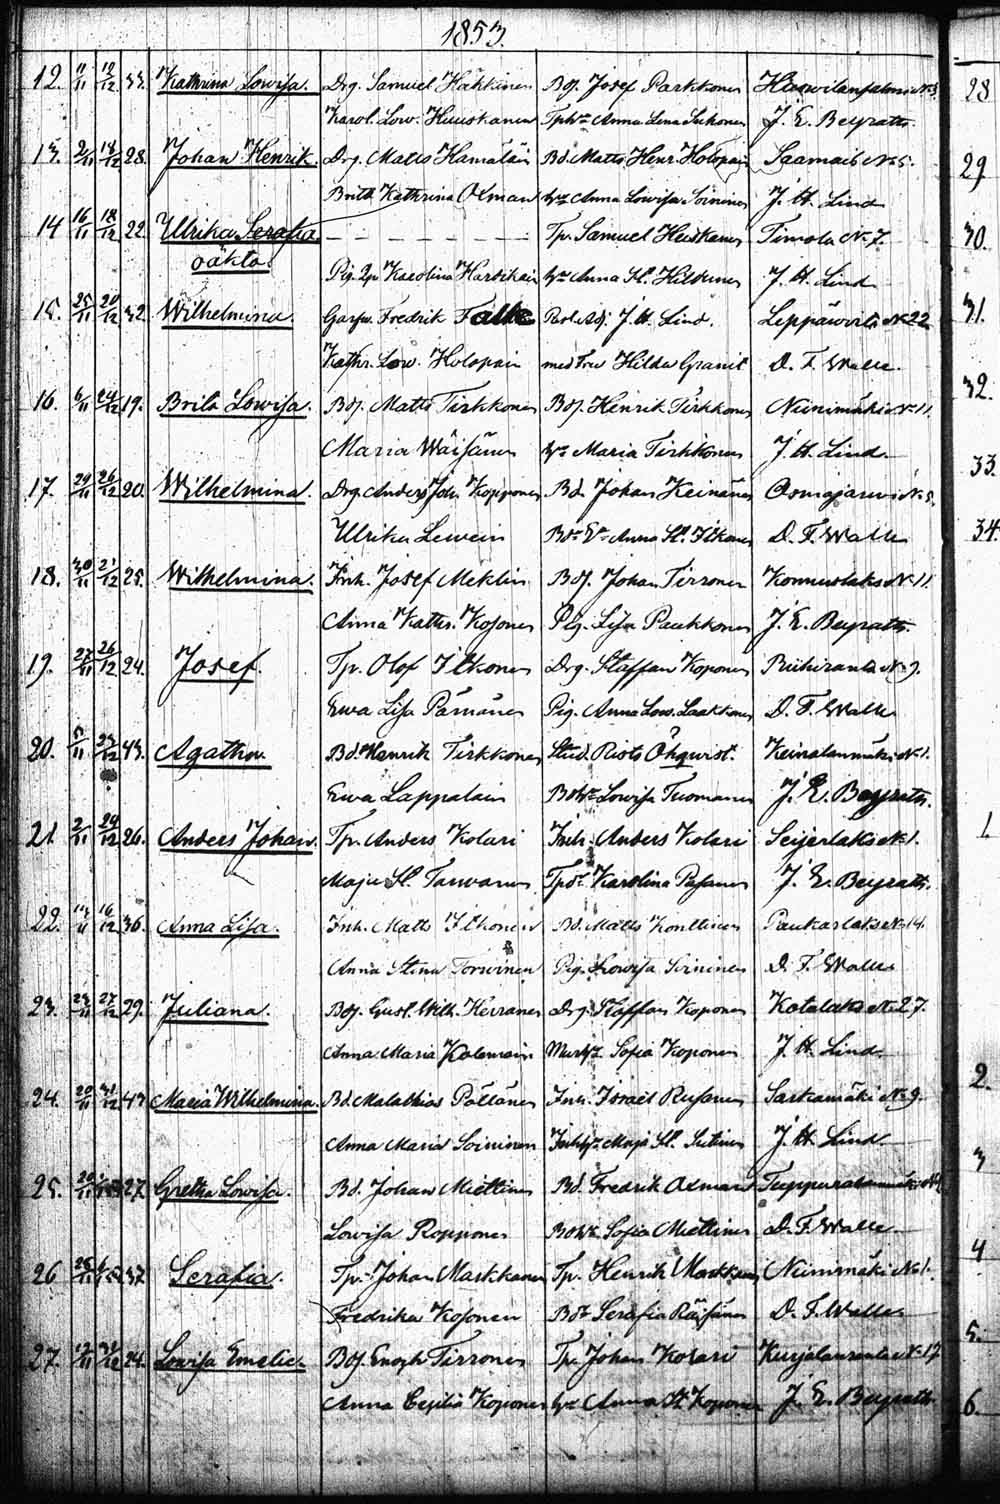 1853.
12. 11/11 10/12 33. Kathrina Lowisa. Drg. Samuel Häkkinen Bdf. Josef Parkkonen Hirvilanselmi N 3.
Karol. Low. Huuskanen Tphr Anna Lena Suhonen J. E. Beyrath.
13. 2/11 18/12 28. Johan Henrik. Drg. Matts Hämäläin Bd. Matts Henr. Holopain Saamais N 5.
Brita Kathrina Oxman Hr Anna Lowisa Soininen J. H. Lind
14 16/11 18/12 22. Ulrika Serafia. Tp. Samuel Huskanen Timola N 7.
oäkta. Pig. Karolina Hartikain Hr Anna St. Hilkunen J. H. Lind
15. 25/11 20/12 32. Wilhelmina. Garfw. Fredrik Falk Past. Adj. J. H. Lind. Leppäwirta N 22
Kathr. Low. Holopain med Fru Hilda Granit D. F. Walle.
16. 6/11 24/12 19. Brita Lowisa. Bdf. Matts Tirkkonen Bdf. Henrik Tirkkonen Niinimäki N 11.
Maria Wäisänen Hr Maria Tirkkonen J. H. Lind.
17. 29/11 26/12 20. Wilhelmina. Drg. Anders Joh. Kopponen Bd. Johan Keinänen Osmajärwi N 5.
Ulrika Lewein Anna St. Itkonen D. F. Walle
18. 30/11 21/12 25. Wilhelmina. Inh. Josef Meklin Bdf. Johan Tirronen Konnuslaks N 11.
Anna Kathr. Kosonen Pig. Lisa Paukkonen J. E. Beyrath.
19. 27/11 26/12 24. Josef. Tp. Olof Itkonen Drg. Staffan Koponen Riihiranta N 9.
Ewa Lisa Pämänen Pig. Anna Low. Laakkonen D. F. Walle
20. 5/11 23/12 43. Agatha. Bd. Henrik Tirkkonen Stud. Öhqvist. Keinälänmäki N 1.
Ewa Lappalain Lowisa Tuomanen J. E. Beyrath.
21. 2/11 24/12 26. Anders Johan. Tp. Anders Kolari Inh. Anders Kolari Seijerlaks N 1.
Maja St. Tarwanen Karolina Pasanen J. E. Beyrath.
22. 14/11 16/12 36. Anna Lisa. Inh. Matts Itkonen Bd. Matts Konttinen Paukarlaks N 14.
Anna Stina Torwinen Pig. Lowisa Soininen D. F. Walle
23. 23/11 27/12 29. Juliana. Bdf. Gust. Wilh. Kerranen Drg. Staffan Koponen Kotalaks N 27.
Anna Maria Kolemain Sofia Koponen J. H. Lind.
24. 20/11 31/12 43 Maria Wilhelmina. Bd. Malakias Pöllänen Inh. Israel Rusanen Sarkamäki N 9.
Anna Maria Soininen Maja St. Sutinen J. H. Lind
25. 27 Gretha Lowisa. Bd. Johan Miettinen Bd. Fredrik Axman
Lowisa Ropponen Sofia Miettinen D. F. Walle
26 37 Serafia. Tp. Johan Markkanen Tp. Henrik Markkanen Niinimäki N 1.
Fredrika Kosonen Serafia Räisänen D. F. Walle
27. 24. Lowisa Emelie. Bdf. Enoch Tirronen Tp. Johan Kolari Kurjalanranta N 17
Anna Cesilia Kopponen Hr Anna St. Koponen J. E. Beyrath.
28
29
30.
31.
32.
33.
34.
1
2.
3
4
5.
6.